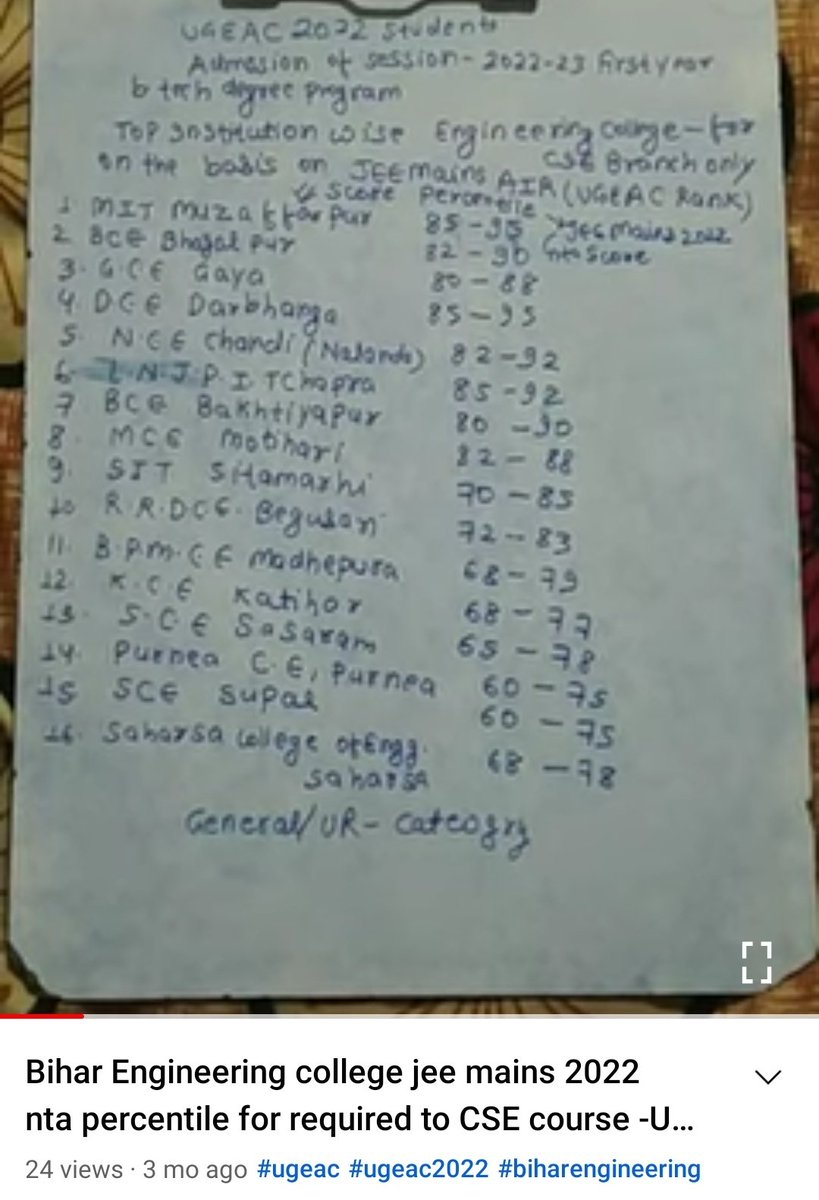 UGEAC 2022 Students
Admission of session - 2022-23 first year
b tech degree program
Top Institution wise Engineering College - for
CSE Branch only
on the basis on JEE mains AIR (UGEAC Rank)
Score Percentile JEE Mains 2022
nta Score
1 MIT Muzaffarpur 85-95
2 BCE Bhagalpur 82-90
3. G.C.E Gaya 80-88
4. D.C.E Darbhanga 85-95
5. N.C.E Chandi (Nalanda) 82-92
6. L.N.J.P.I.T Chapra 85-92
7 BCE Bakhtiyapur 80-90
8. MCE Motihari 82-88
9. SIT Sitamarhi 70-85
10 R.R.D.C.E. Begusari 72-83
11. B.P.M.C.E Madhepura 68-79
12. K.C.E Katihar 68-77
13. S.C.E Sasaram 65-78
14. Purnea C.E, Purnea 60-75
15 SCE Supal 60-75
16. Saharsa College of Engg.
Saharsa 68-78
General/UR- Cateogry
Bihar Engineering college jee mains 2022
nta percentile for required to CSE course -U...
24 views · 3 mo ago #ugeac #ugeac2022 #biharengineering